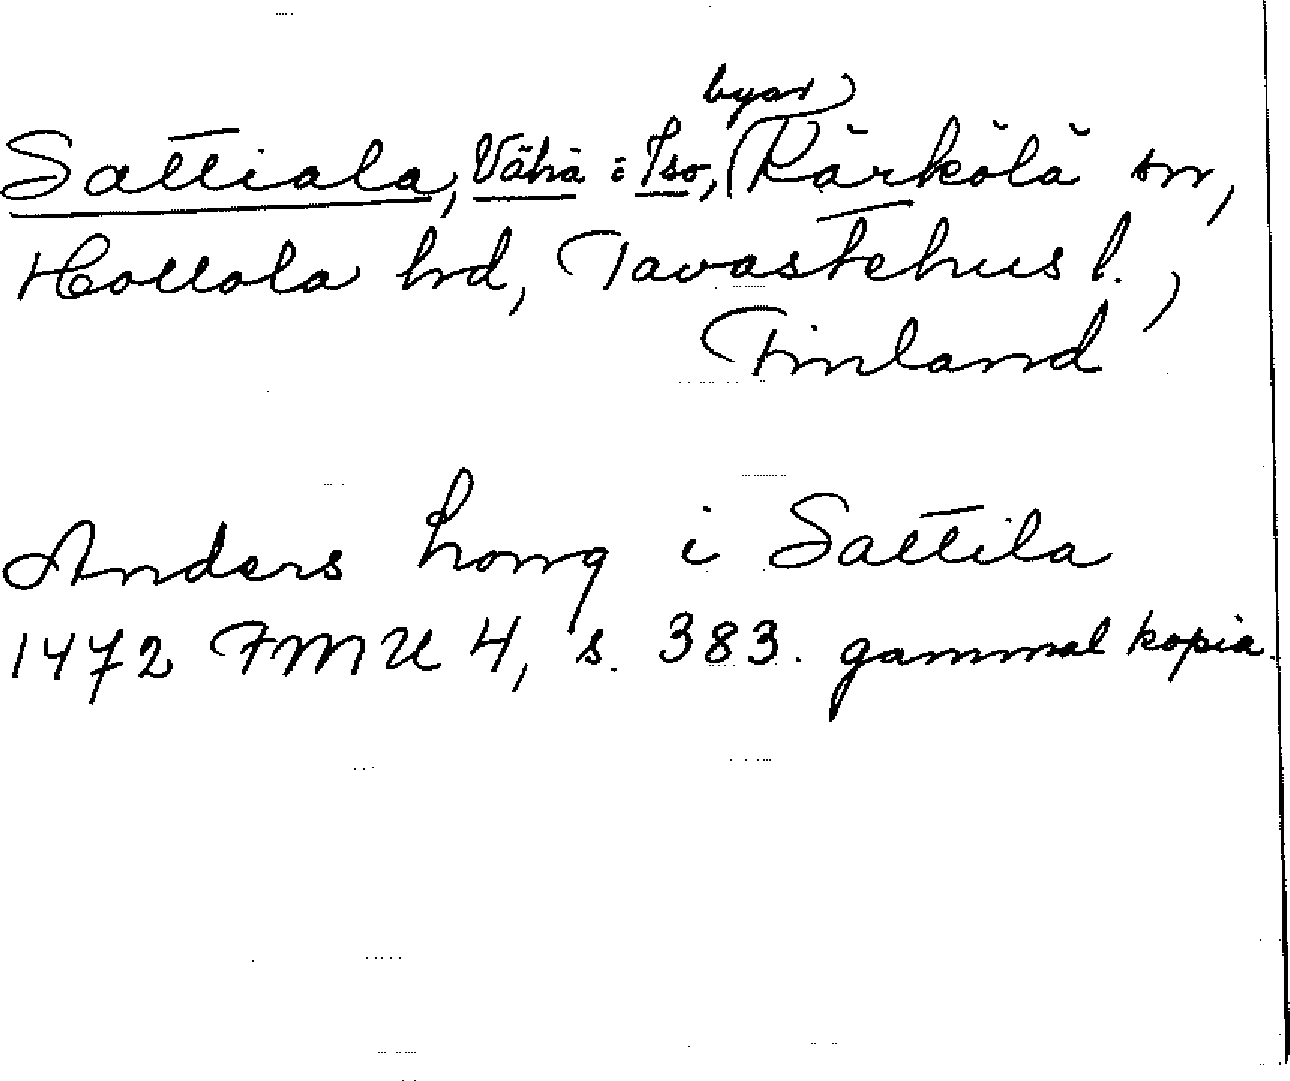 Sattiala, Vähä : Iso, byar Kärkölä sn,
Hollola hrd, Tavastehus l.,
Finland
Anders hong i Sattila
1472 FMU 4, s. 383. gammal kopia.